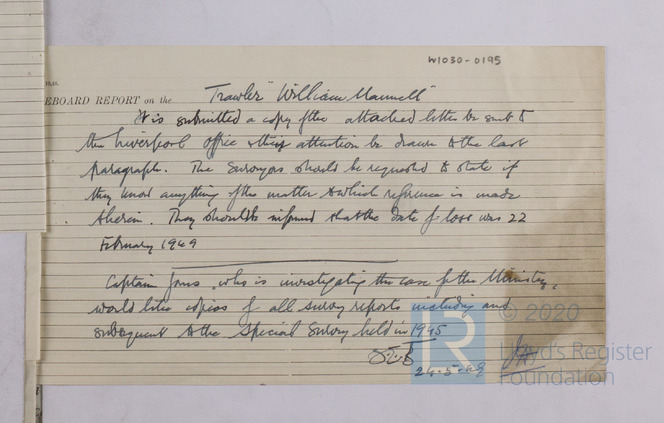 W1030-0195
EBOARD REPORT on the Trawler "William Mannell"
It is submitted a copy of the attached letter be sent to
the Liverpool office & their attention be drawn to the last
paragraph. The Surveyors should be requested to state if
they know anything of the matter to which reference is made
therein. They should be informed that the date of loss was 22
February 1949
Captain Jones, who is investigating the case for the Ministry,
would like copies of all survey reports including and
subsequent to the Special Survey held in 1945
24-5-49
© 2020
Lloyd's Register
Foundation